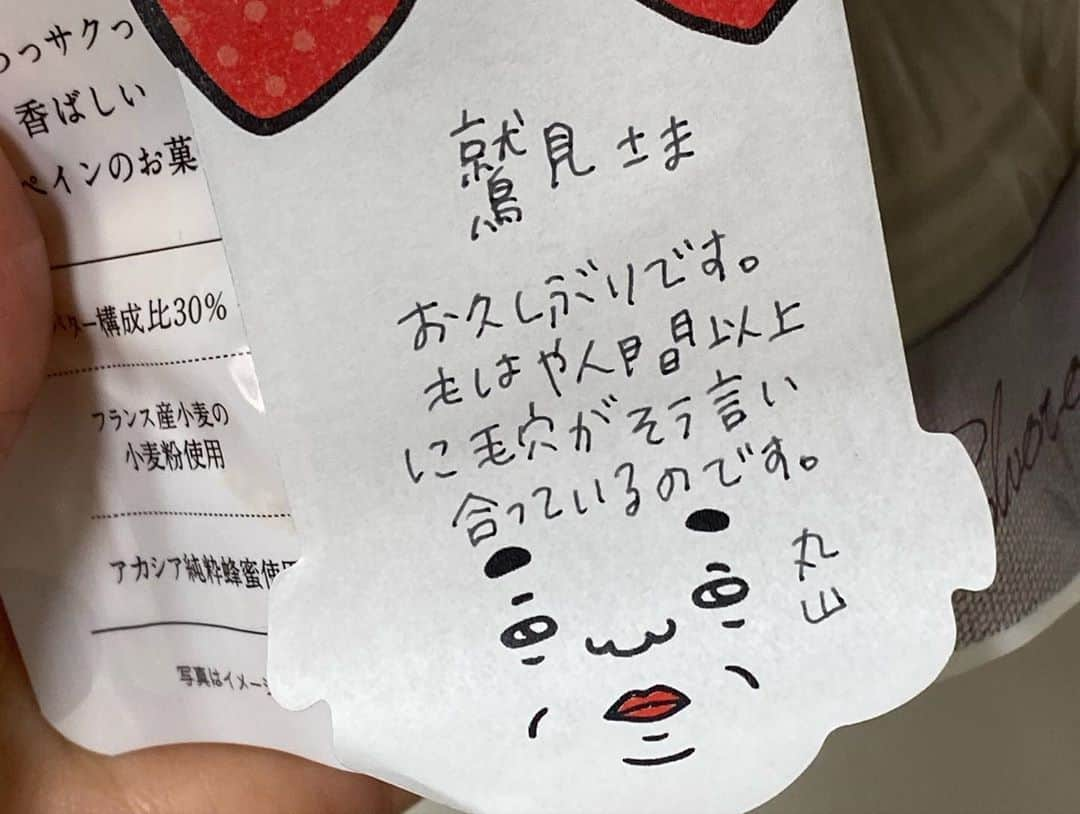 っっサクっ
香ばしい
ペインのお菓
バター構成比30%
フランス産小麦の
小麦粉使用
アカシア純粋蜂蜜使用
写真はイメージ
鷲見さま
お久しぶりです。
もはや人間以上
に毛穴がそう言い
合っているのです。
丸山